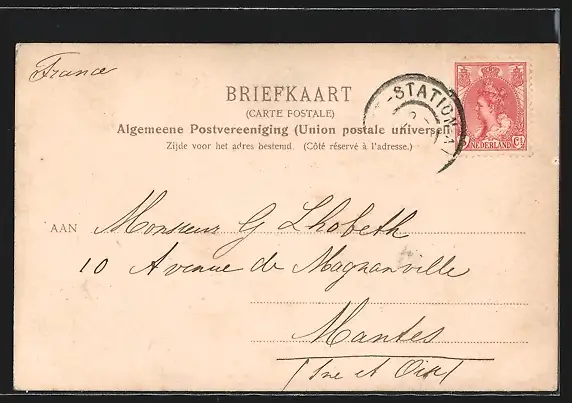 France
BRIEFKAART
(CARTE POSTALE)
Algemeene Postvereeniging (Union postale universelle)
Zijde voor het adres bestemd. (Côté réservé à l'adresse.)
-STATION
NEDERLAND Ct
AAN Monsieur G Lhobeth
10 Avenue de Magnanville
Mantes
(Sne et Oise)